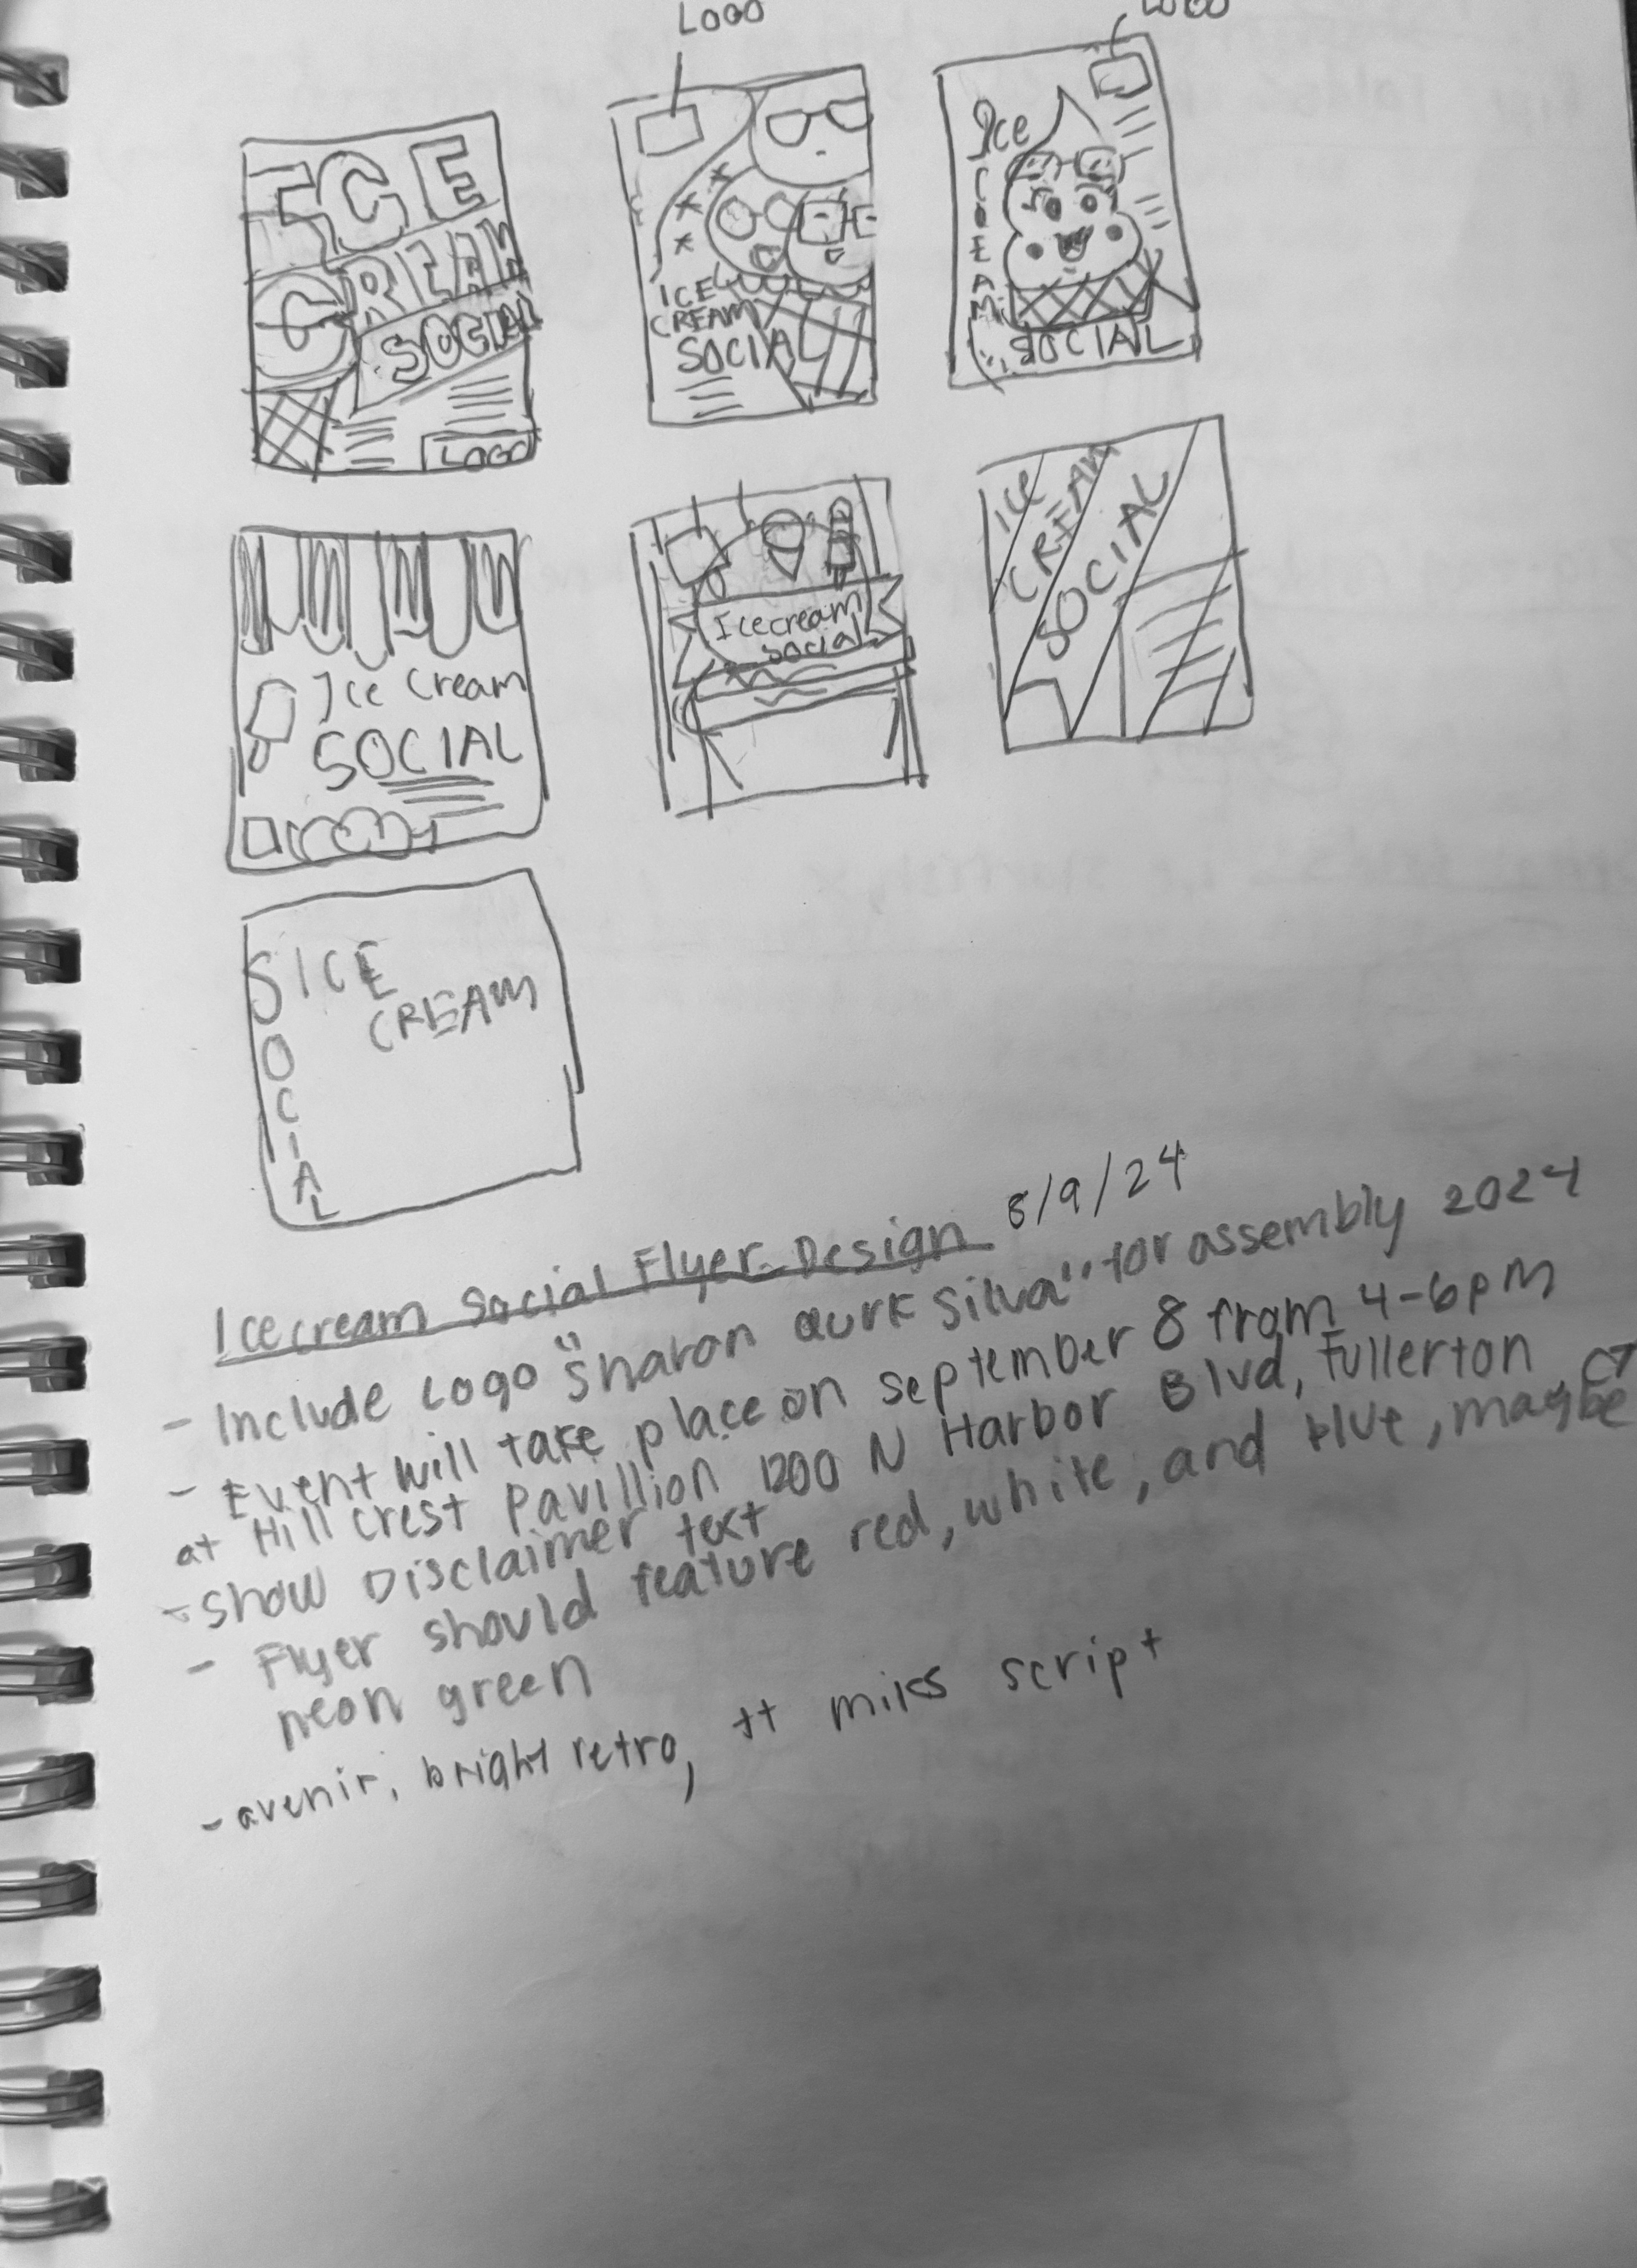 LOGO
LOGO
ICE
CREAM
SOCIAL
LOGO
ICE
CREAM
SOCIAL
Ice
CREAM
SOCIAL
Ice Cream
SOCIAL
Icecream
social
ICE
CREAM
SOCIAL
SOCIAL
ICE
CREAM
Icecream Social Flyer Design 8/9/24
- Include Logo "Sharon Quirk Silva" for assembly 2024
- Event will take place on september 8 from 4-6pm
at Hill crest pavillion 1200 N Harbor Blvd, Fullerton,
- Show Disclaimer text
- Flyer should feature red, white, and blue, maybe
neon green
- avenir, bright retro, tt milks script